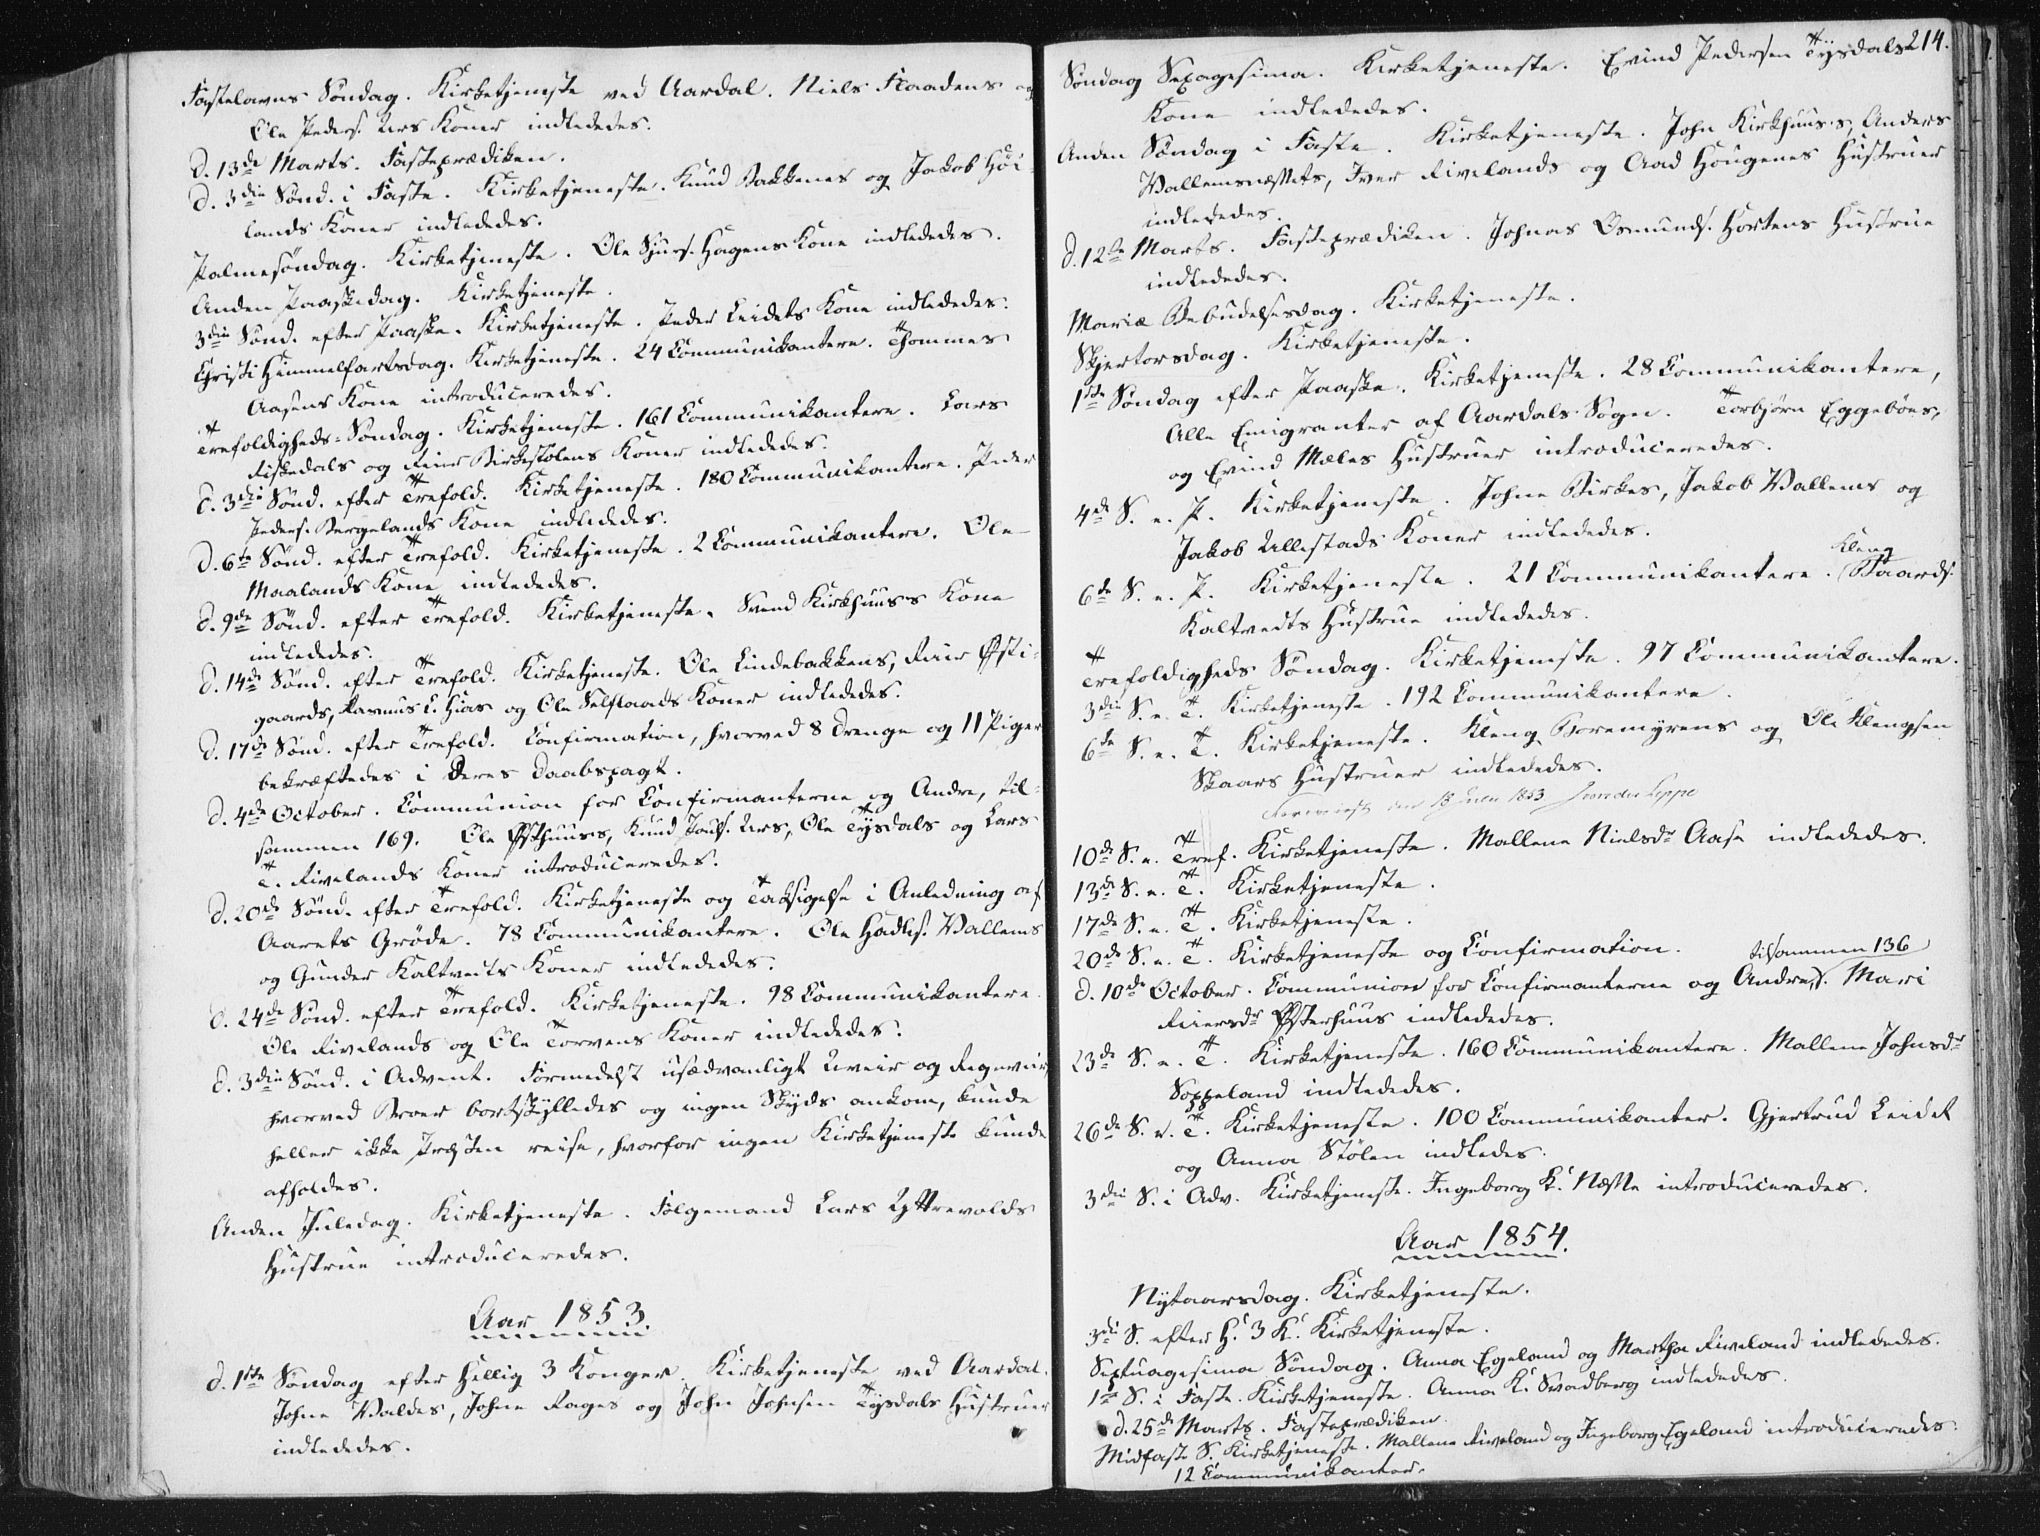 Fastelavns Söndag. Kirketjeneste ved Aardal. Niels Staadens og
Ole Peders. Urs Koner indlededes.
D. 13de Marts. Fasteprædiken.
D. 3die Sönd. i Faste. Kirketjeneste. Knud Bakkenes og Jakob Höi-
lands Koner indlededes.
Palmesöndag. Kirketjeneste. Ole Sjurs. Hagens Kone indlededes.
Anden Paaskedag. Kirketjeneste.
3die Sönd. efter Paaske. Kirketjeneste. Peder Leidets Kone indlededes.
Christi Himmelfartsdag. Kirketjeneste. 24 Communikantere. Thommes
Aasens Kone introduceredes.
Trefoldigheds-Söndag. Kirketjeneste. 161 Communikantere. Lars
Fiskedals og Reier Birkestölens Koner indlededes.
D. 3die Sönd. efter Trefold. Kirketjeneste. 180 Communikantere. Peder
Peders. Bergelands Kone indlededes.
D. 6te Sönd. efter Trefold. Kirketjeneste. 2 Communikantere. Ole
Maalands Kone indlededes.
D. 9de Sönd. efter Trefold. Kirketjeneste. Svend Kirkhuus's Kone
indlededes.
D. 14de Sönd. efter Trefold. Kirketjeneste. Ole Lindebakkens, Reier Østi-
gaards, Rasmus L. Hias og Ole Selstaads Koner indlededes.
D. 17de Sönd. efter Trefold. Confirmation, hvorved 8 Drenge og 11 Piger
bekræftedes i deres Daabspagt.
D. 4de October. Communion for Confirmanterne og Andre, til-
sammen 169. Ole Østhuus's, Knud Urs, Ole Tysdals og Lars
T. Rivelands Koner introduceredes.
D. 20de Sönd. efter Trefold. Kirketjeneste og Taksigelse i Anledning af
Aarets Gröde. 78 Communikantere. Ole Hadles. Vallems
og Gunder Kaltvedts Koner indlededes.
D. 24de Sönd. efter Trefold. Kirketjeneste. 98 Communikantere.
Ole Rivelands og Ole Torvens Koner indlededes.
D. 3die Sönd. i Advent. Formedelst usædvanligt Uveir og Regnveir,
hvorved Broer bortskylledes og ingen Skyds ankom, kunde
heller ikke Præsten reise, hvorfor ingen Kirketjeneste kunde
afholdes.
Anden Juledag. Kirketjeneste. Fölgemand Lars Yttrevolds
Hustrue introduceredes.
Aar 1853.
d. 1ste Söndag efter Hellig 3 Konger. Kirketjeneste ved Aardal.
Johne Valdes, Johne Rages og John Johnsen Tysdals Hustruer
indlededes.
214.
Söndag Sexagesima. Kirketjeneste. Evind Pedersen Tysdals
Kone indlededes.
Anden Söndag i Faste. Kirketjeneste. John Kirkhuus's, Anders
Vallemsnæssets, Iver Rivelands og Aad Hougenes Hustruer
indlededes.
d. 12te Marts. Fasteprædiken. Johnas Osmunds. Hortens Hustrue
indlededes.
Mariæ Bebudelsesdag. Kirketjeneste.
Skjertorsdag. Kirketjeneste.
1ste Söndag efter Paaske. Kirketjeneste. 28 Communikantere,
Alle Emigranter af Aardals Sogn. Torbjørn Eggebøes,
og Evind Mæles Hustruer introduceredes.
4de S. e. P. Kirketjeneste. Johne Birkes, Jakob Vallems og
Jakob Ullestads Koner indlededes.
6de S. e. P. Kirketjeneste. 21 Communikantere. Kleng Baards.
Kaltvedts Hustrue indlededes.
Trefoldigheds Söndag. Kirketjeneste. 97 Communikantere.
3die S. e. T. Kirketjeneste. 192 Communikantere.
6te S. e. T. Kirketjeneste. Kleng Boremyrens og Ole Klengsen
Skaars Hustruer indlededes.
1853
10de S. e. Tref. Kirketjeneste. Mallene Nielsdr Aase indlededes.
13de S. e. T. Kirketjeneste.
17de S. e. T. Kirketjeneste.
20de S. e. T. Kirketjeneste og Confirmation.
d. 10de October. Communion for Confirmanterne og Andre, tilsammen 136. Mari
Reiersdr Østerhuus indlededes.
23de S. e. T. Kirketjeneste. 160 Communikantere. Mallene Johnsdr
Soppeland indlededes.
26de S. e. T. Kirketjeneste. 100 Communikanter. Gjertrud Leidet
og Anna Stölen indledes.
3die S. i Adv. Kirketjeneste. Ingeborg K. Næsse introduceredes.
Aar 1854.
Nytaarsdag. Kirketjeneste.
3die S. efter H. 3 K. Kirketjeneste.
Septuagesima Söndag. Anna Egeland og Martha Riveland indlededes.
1ste S. i Faste. Kirketjeneste. Anna K. Svadberg indlededes.
d. 25de Marts. Fasteprædiken.
Midfaste S. Kirketjeneste. Mallene Riveland og Ingeborg Egeland introduceredes.
12 Communikanter.